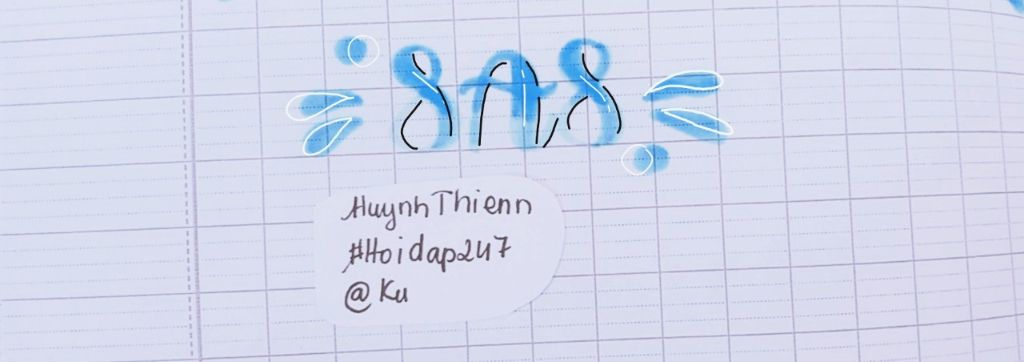 SAS
HuynhThienn
#Hoidap247
@ Ku